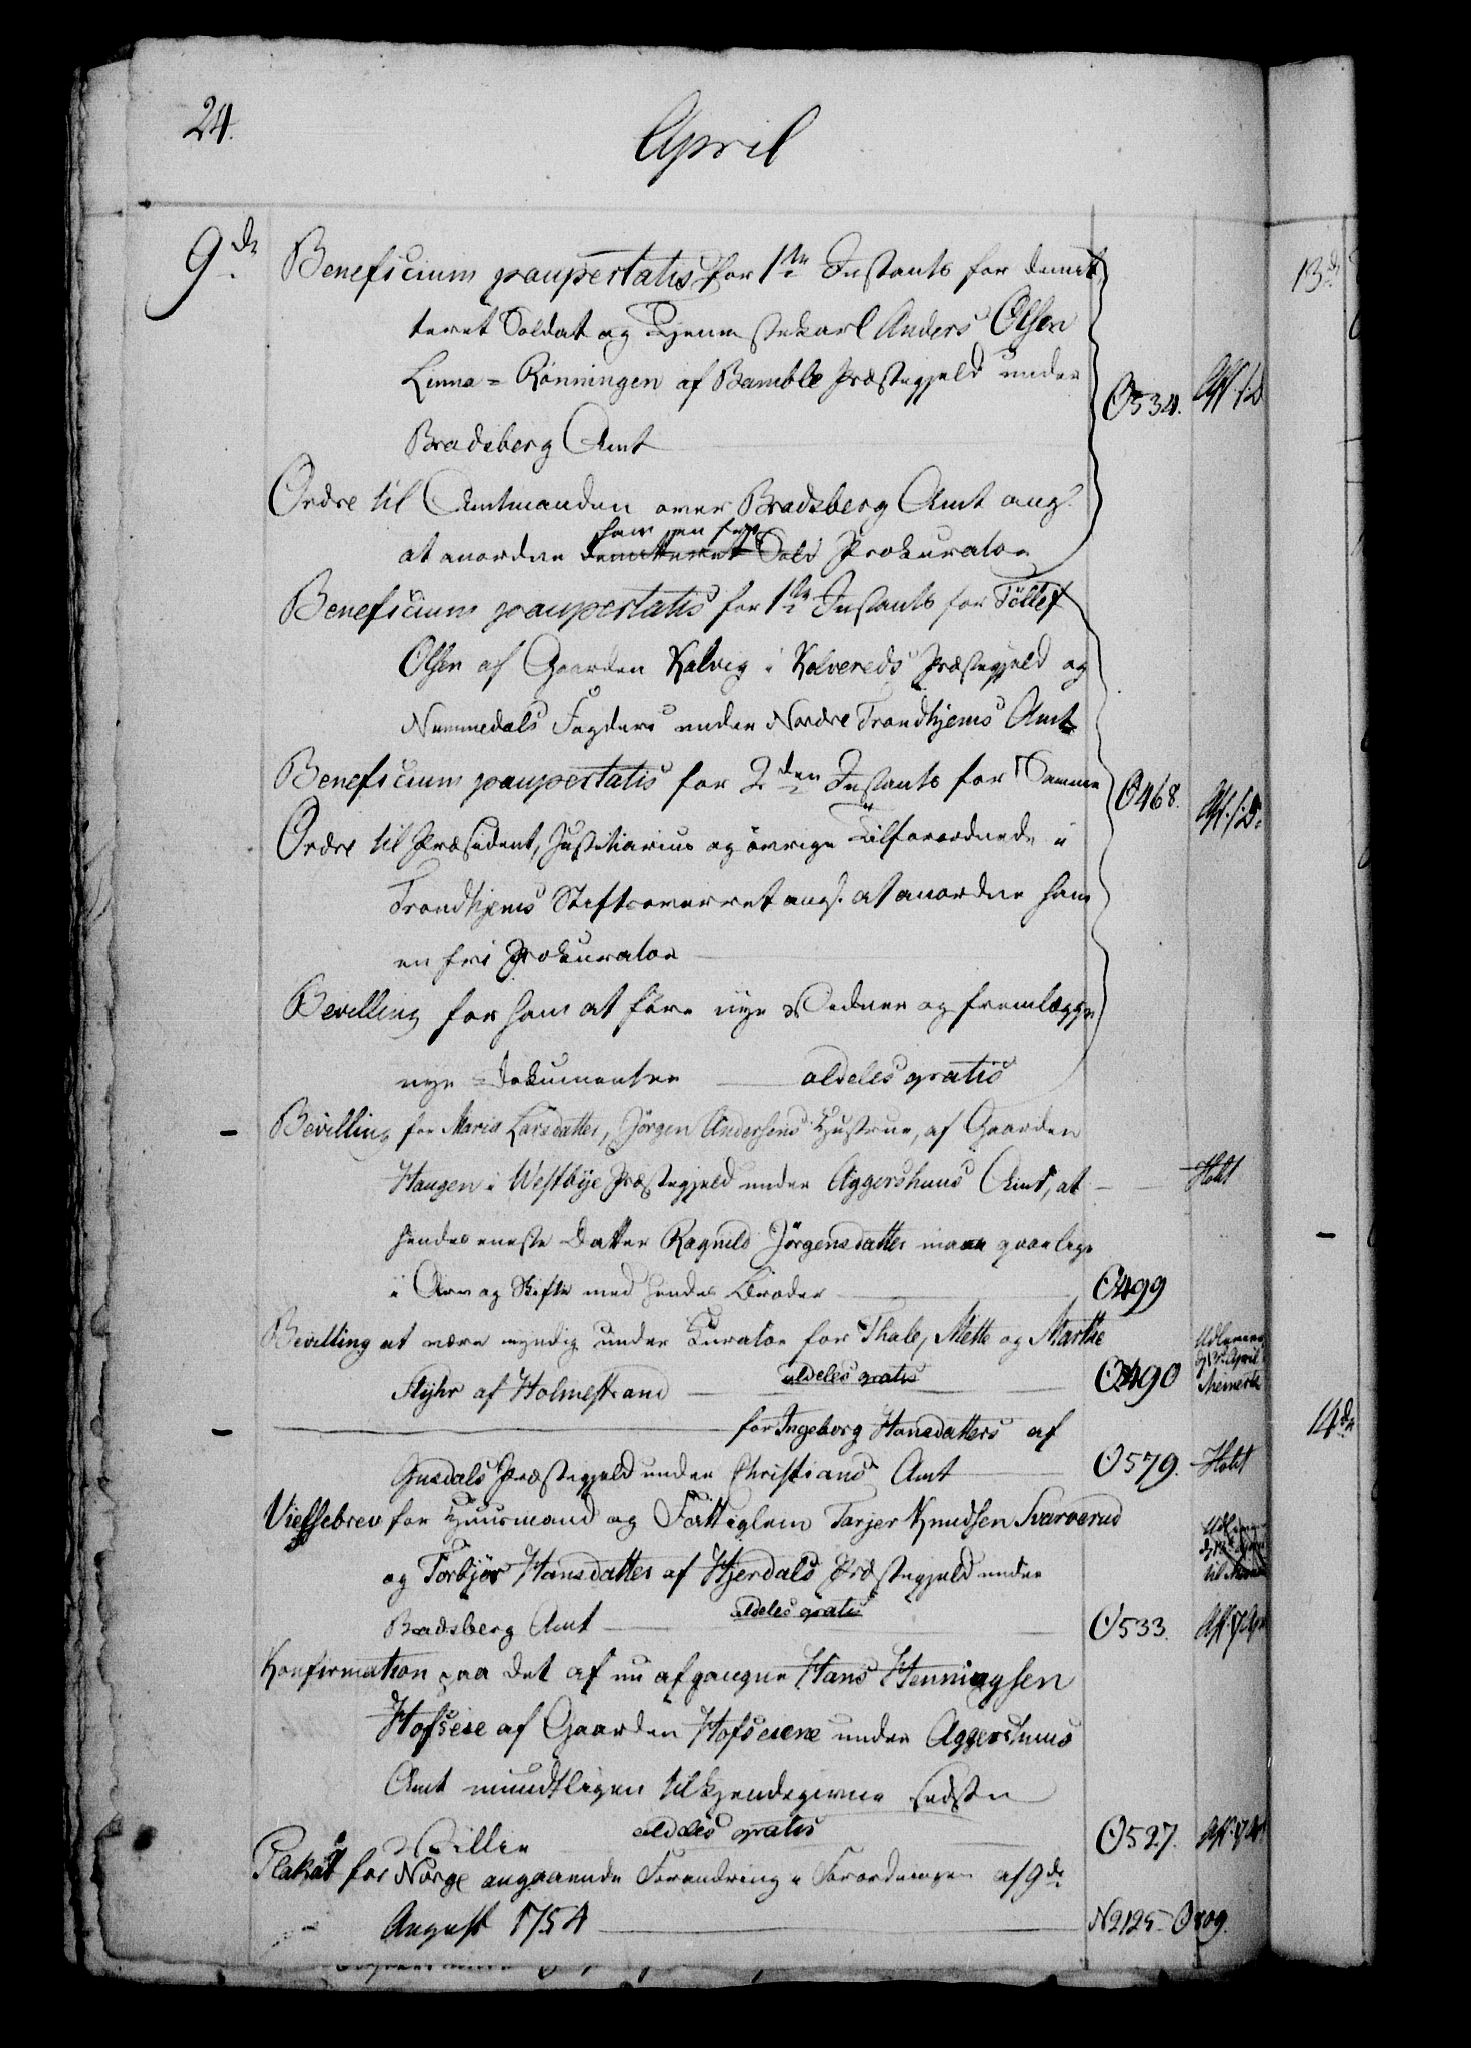 24.
April
9de
Beneficium paupertatis for 1ste Instants for demit-
teret Soldat og Tjenestekarl Anders Olsen
Linna-Rønningen af Bamble Præstegjeld under
Bradsberg Amt
O 534.
Ordre til Amtmanden over Bradsberg Amt angl.
ham en frie
at anordne demitteret Sold Prokurator
Beneficium paupertatis for 1ste Instants for Tollef
Olsen af Gaarden Kalvig i Kolvereds Præstegjeld og
Nummedals Fogderi under Nordre Trondhjems Amt
Beneficium paupertatis for 2den Instants for Samme
O 468.
Ordre til Præsident, Justitiarius og øvrige Tilforordnede i
Trondhjems Stiftsoverret angl. at anordne ham
en fri Prokurator
Bevilling for ham at føre nye Vidner og fremlægge
nye Dokumenter aldeles gratis
Bevilling for Maria Larsdatter, Jørgen Andersens Hustrue, af Gaarden
Haugen i Westbye Præstegjeld under Aggershuus Amt, at
Holst
hendes eneste Datter Ragnild Jørgensdatter maae gaae lige
i Arv og Skifte med hendes Broder
O 499
Bevilling at være myndig under Kurator for Thale, Mette og Marthe
Styhr af Holmestrand aldeles gratis
O 490
Udleveret
d 13 April
for Ingeborg Hansdatters af
Gusdals Præstegjeld under Christians Amt
O 579. Holst
Vielsebrev for Huusmand og Fattiglem Tarjer Knudsen Svarverud
og Torbjør Hansdatter af Hjerdals Præstegjeld under
Bradsberg Amt aldeles gratis
O 533.
Konfirmation paa det af nu afgangne Hans Henningsen
Hofseie af Gaarden Hofseiene under Aggershuus
Amt mundtligen tilkjendegivne sidste
Villie aldeles gratis
O 527.
Plakat for Norge angaaende Forandring i Forordningen af 9de
August 1754
N 2125 - O 809.
13de
14de